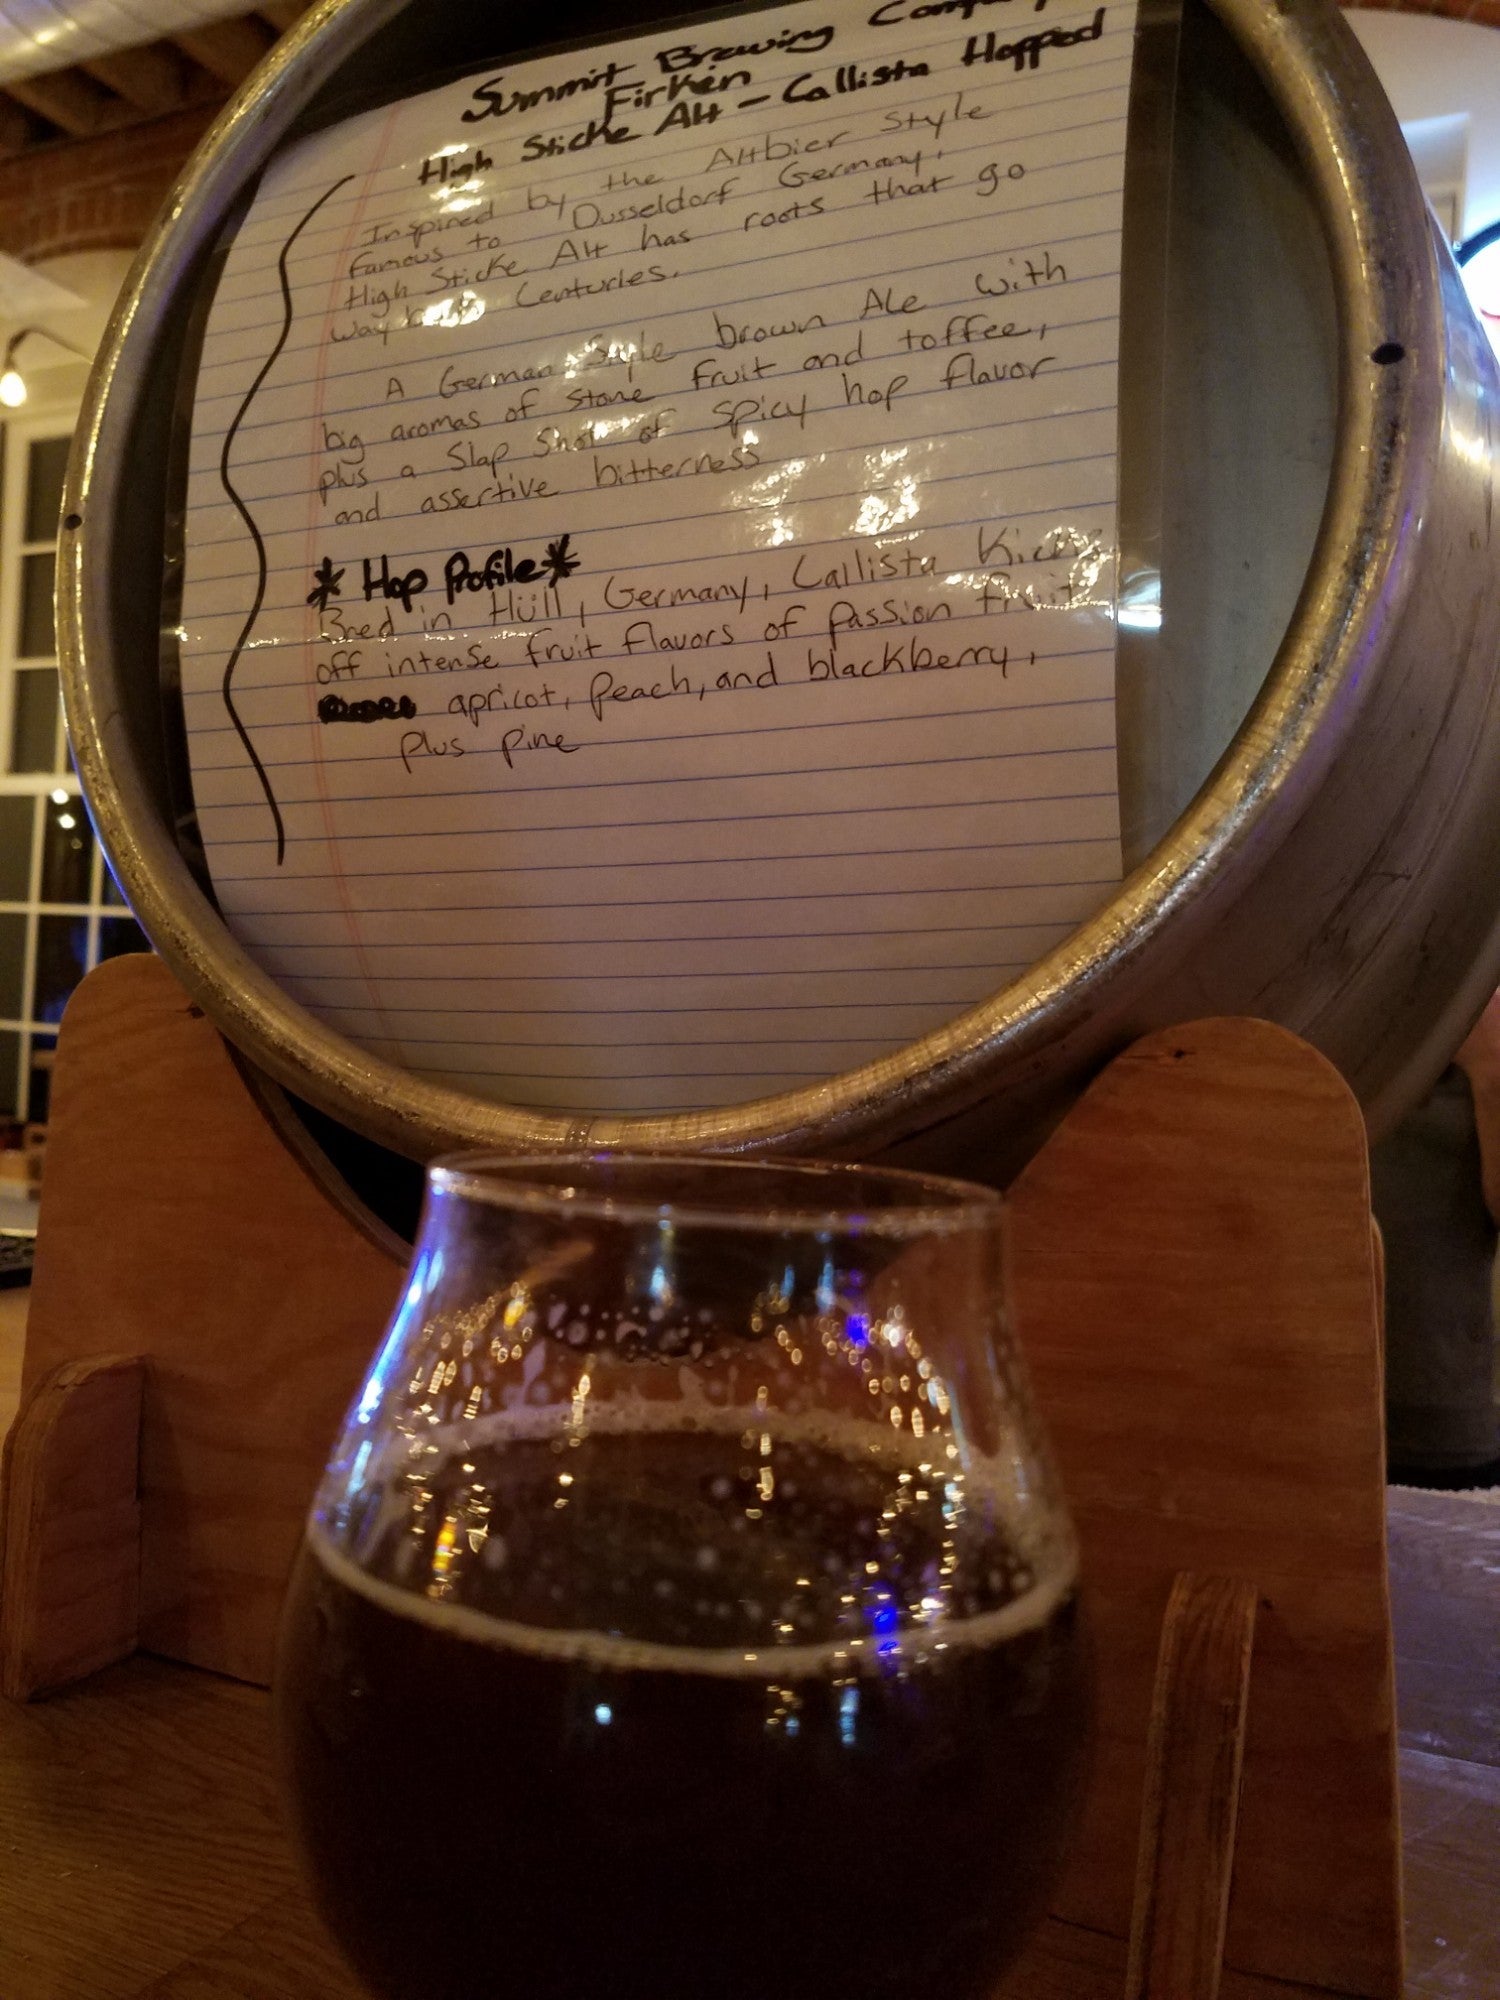 Summit Brewing Company
Firkin
High Sticke Alt - Callista Hopped
Inspired by the Altbier Style
famous to Dusseldorf Germany,
High Sticke Alt has roots that go
way back Centuries.
A German Style brown Ale with
big aromas of stone fruit and toffee,
plus a Slap Shot of spicy hop flavor
and assertive bitterness
* Hop Profile *
Bred in Hüll, Germany, Callista Kicks
off intense fruit flavors of passion fruit
apricot, peach, and blackberry,
plus pine